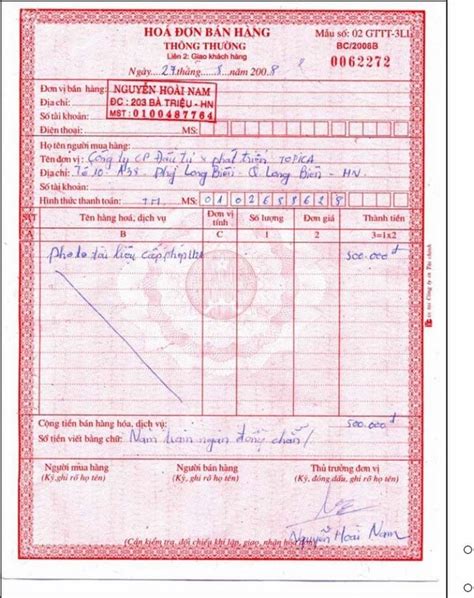 HOÁ ĐƠN BÁN HÀNG
THÔNG THƯỜNG
Liên 2: Giao khách hàng
Ngày 27 tháng 8 năm 2008
Mẫu số: 02 GTTT-3LL
BC/2008B
0062272
Đơn vị bán hàng: NGUYỄN HOÀI NAM
Địa chỉ: ĐC : 203 BÀ TRIỆU - HN
Số tài khoản: MST : 0100487764
Điện thoại: MS:
Họ tên người mua hàng:
Tên đơn vị: Công ty CP Đầu tư & phát triển TOPICA
Địa chỉ: Tổ 10 Long Biên - Q Long Biên - HN
Số tài khoản:
Hình thức thanh toán: TM MS:
STT Tên hàng hoá, dịch vụ Đơn vị tính Số lượng Đơn giá Thành tiền
A B C 1 2 3=1x2
Photo tài liệu cấp phép 500.000đ
Cộng tiền bán hàng hóa, dịch vụ: 500.000đ
Số tiền viết bằng chữ: Năm trăm ngàn đồng chẵn/
Người mua hàng Người bán hàng Thủ trưởng đơn vị
(Ký, ghi rõ họ tên) (Ký, ghi rõ họ tên) (Ký, đóng dấu, ghi rõ họ tên)
Nguyễn Hoài Nam
(Cần kiểm tra, đối chiếu khi lập, giao, nhận hóa đơn)